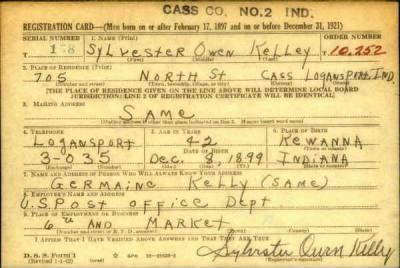 CASS CO. NO.2 IND.
REGISTRATION CARD—(Men born on or after February 17, 1897 and on or before December 31, 1921)
SERIAL NUMBER 1. NAME (Print) ORDER NUMBER
178 Sylvester Owen Kelley 10,252
(First) (Middle) (Last)
2. PLACE OF RESIDENCE (Print)
705 North St Cass Logansport, Ind.
(Number and street) (Town, township, village, or city) (County) (State)
[THE PLACE OF RESIDENCE GIVEN ON THE LINE ABOVE WILL DETERMINE LOCAL BOARD
JURISDICTION; LINE 2 OF REGISTRATION CERTIFICATE WILL BE IDENTICAL]
3. MAILING ADDRESS
Same
[Mailing address if other than place indicated on line 2. If same insert word same]
4. TELEPHONE 5. AGE IN YEARS 6. PLACE OF BIRTH
Logansport 42 Kewanna
DATE OF BIRTH (Town or county)
3-035 Dec. 8, 1899 Indiana
(Exchange) (Number) (Mo.) (Day) (Yr.) (State or country)
7. NAME AND ADDRESS OF PERSON WHO WILL ALWAYS KNOW YOUR ADDRESS
Germaine Kelly (Same)
8. EMPLOYER'S NAME AND ADDRESS
U.S. Post Office Dept
9. PLACE OF EMPLOYMENT OR BUSINESS
6th and Market
(Number and street or R. F. D. number) (Town) (County) (State)
I AFFIRM THAT I HAVE VERIFIED ABOVE ANSWERS AND THAT THEY ARE TRUE.
D. S. S. Form 1
(Revised 1-1-42) (over)
Sylvester Owen Kelly